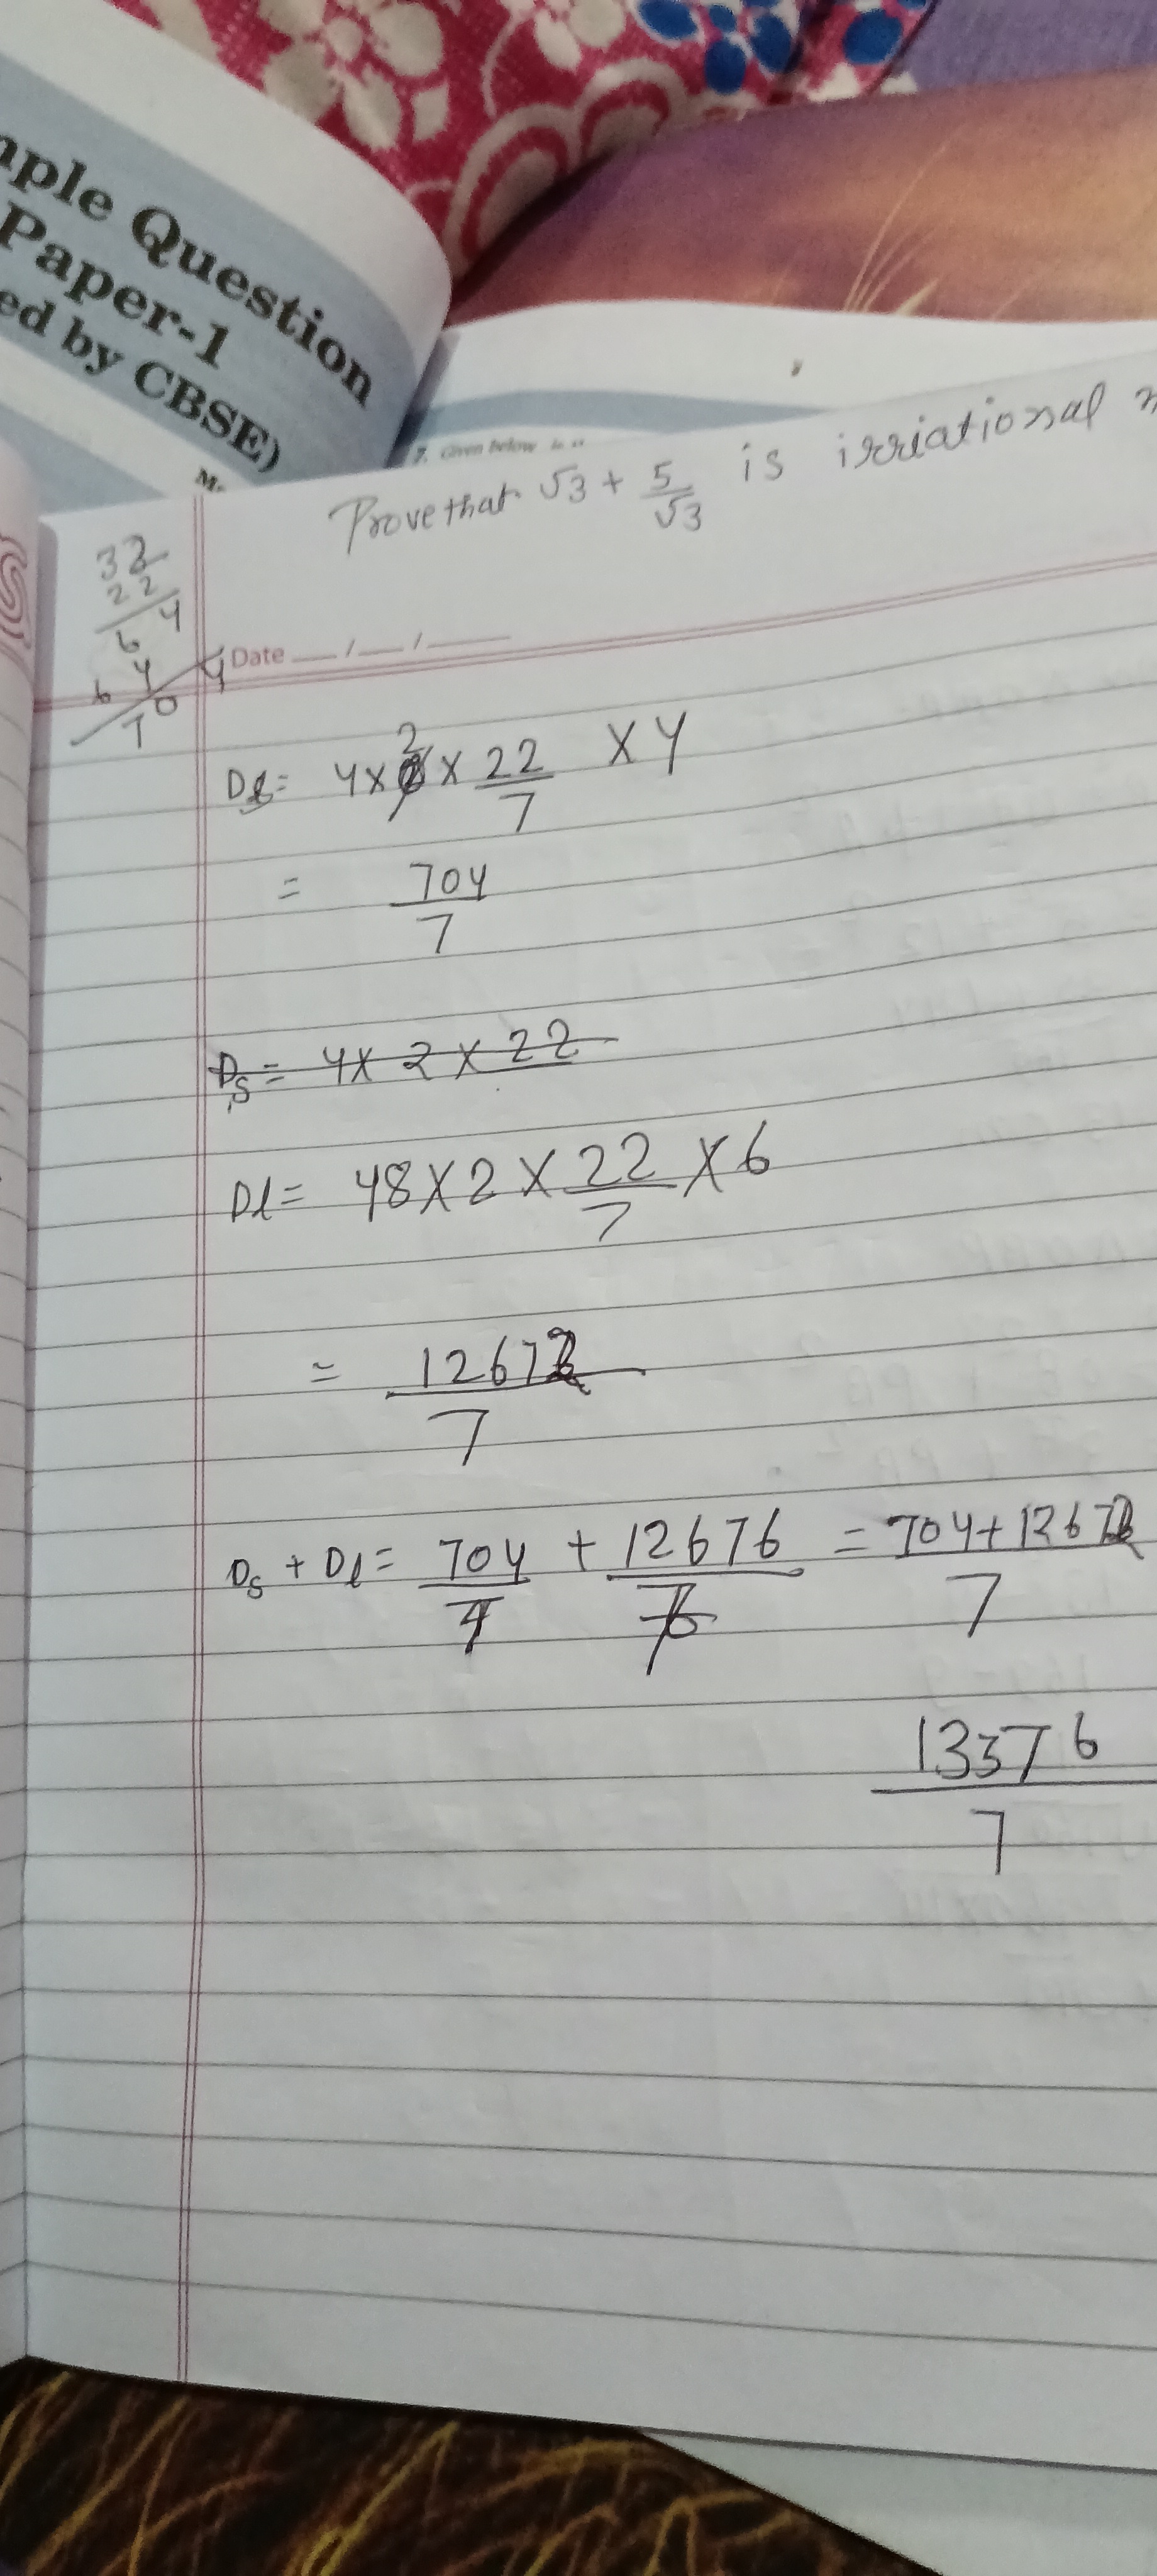 mple Question
Paper-1
ed by CBSE)
7. Given below is
Prove that √3 + 5/√3 is irriational
32
22
64
64
704
Date __/__/____
Ds = 4 x 2 x 22/7 x 4
= 704/7
Ds = 4 x 2 x 22
Dl = 48 x 2 x 22/7 x 6
= 12672/7
Ds + Dl = 704/7 + 12676/7 = 704+12672/7
13376/7